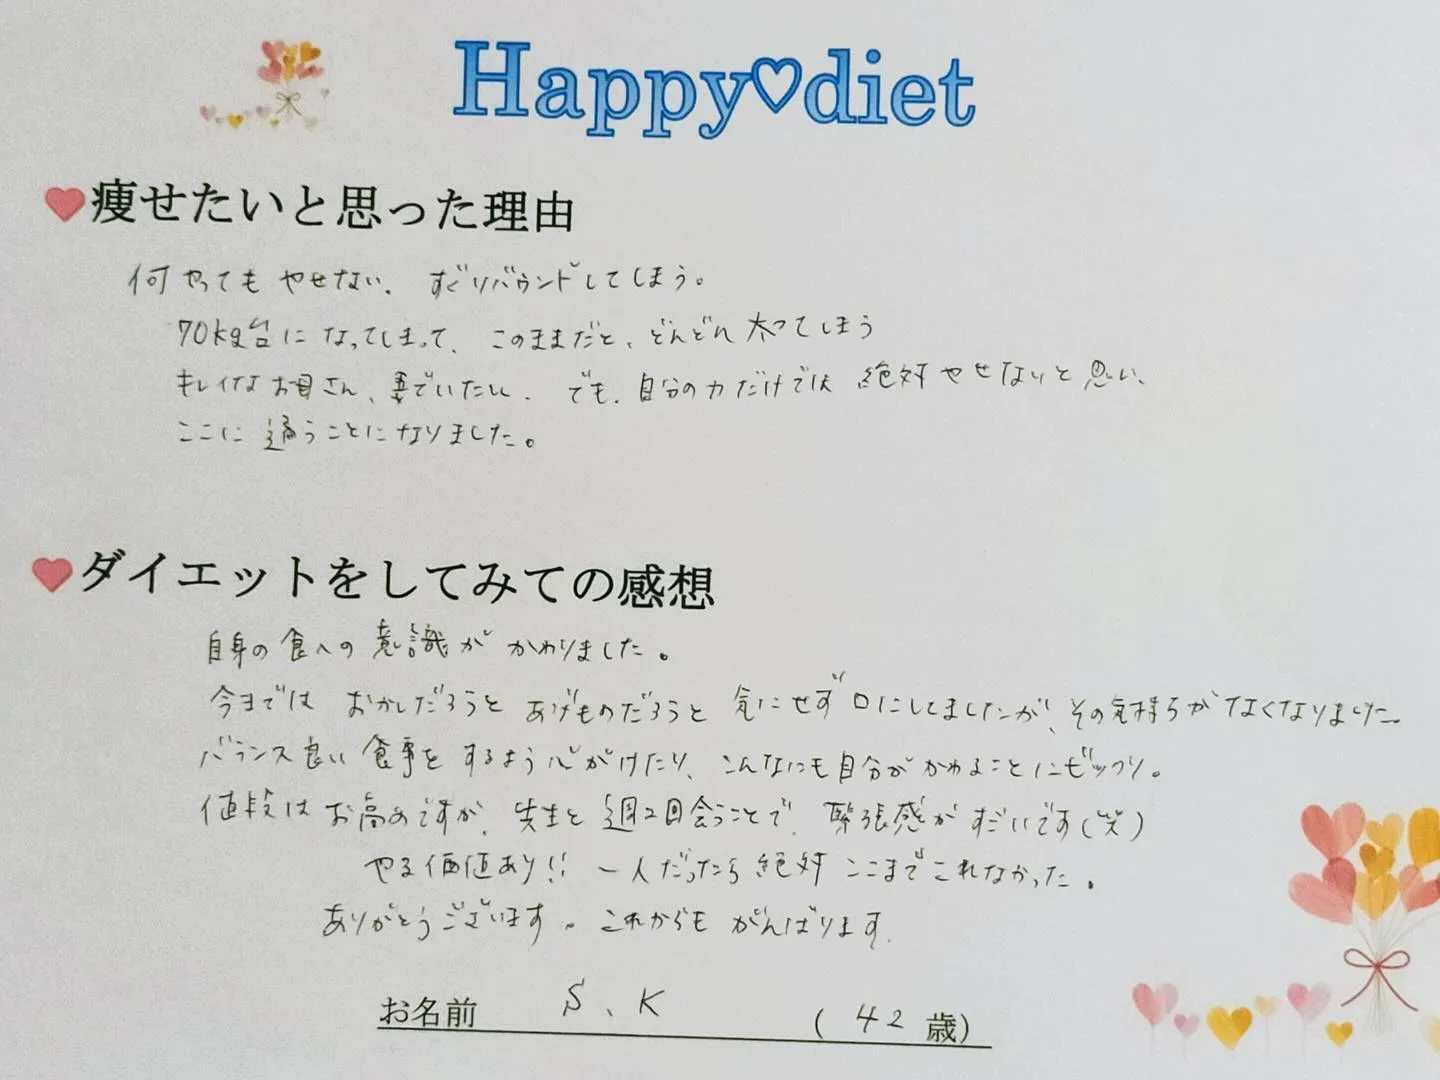 Happy♡diet
痩せたいと思った理由
何やってもやせない、すぐリバウンドしてしまう。
70kg台になってしまって、このままだと、どんどん太ってしまう
キレイなお母さん、妻でいたい、でも、自分の力だけでは絶対やせないと思い、
ここに通うことになりました。
ダイエットをしてみての感想
自身の食への意識がかわりました。
今まではおかしだろうとあげものだろうと気にせず口にしてましたが、その気持ちがなくなりました。
バランス良い食事をするよう心がけたり、こんなにも自分がかわることにビックリ。
値段はお高めですが、先生と週2回会うことで、緊張感がすごいです(笑)
やる価値あり!! 一人だったら絶対ここまでこれなかった。
ありがとうございます。これからもがんばります。
お名前 S、K (42歳)